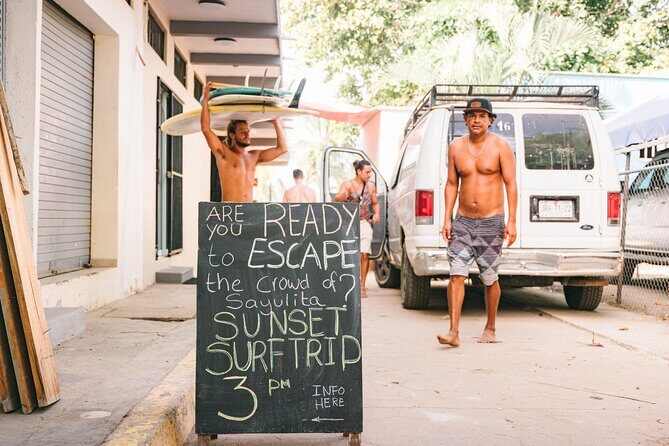 ARE YOU READY
to ESCAPE
the Crowd of
Sayulita?
SUNSET
SURFTRIP
3 pm
INFO
HERE